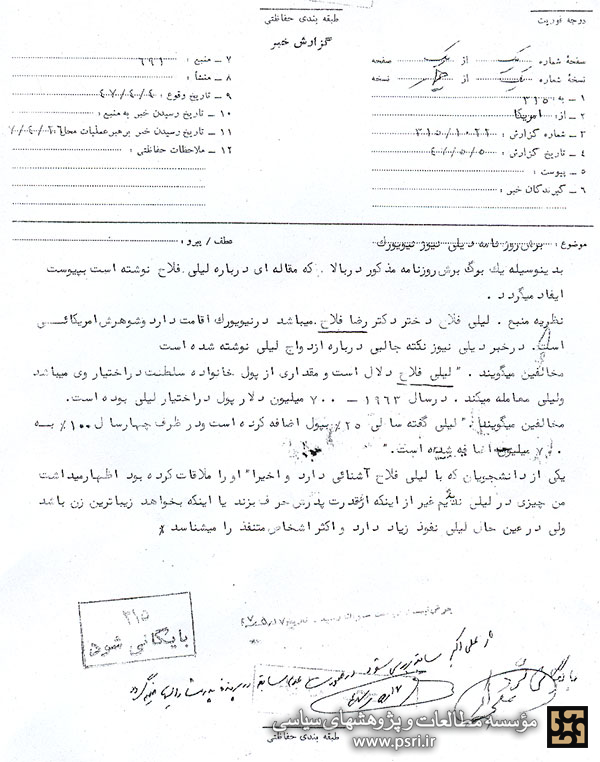 طبقه بندی حفاظتی
درجه فوریت
گزارش خبر
صفحهٔ شماره یک از یک صفحه
نسخهٔ شماره از نسخه
۱ ـ به : ۳۱۵
۲ ـ از : امریکا
۳ ـ شماره گزارش :
۴ ـ تاریخ گزارش :
۵ ـ پیوست :
۶ ـ گیرندگان خبر :
۷ ـ منبع : ۶۹۱
۸ ـ منشأ :
۹ ـ تاریخ وقوع : ۴۷/۴/۴
۱۰ ـ تاریخ رسیدن خبر به منبع :
۱۱ ـ تاریخ رسیدن خبر برهبر عملیات محل :
۱۲ ـ ملاحظات حفاظتی :
موضوع : برش روز نامه دیلی نیوز نیویورک عطف / پیرو :
بدینوسیله یک برگ برش روزنامه مذکور دربالا که مقاله ای درباره لیلی فلاح نوشته است بپیوست
ایفاد میگردد .
نظریه منبع . لیلی فلاح دختر دکتر رضا فلاح میباشد درنیویورک اقامت دارد وشوهرش امریکائی
است . درخبر دیلی نیوز نکته جالبی درباره ازدواج لیلی نوشته شده است
مخالفین میگویند . " لیلی فلاح دلال است و مقداری از پول خانواده سلطنت دراختیار وی میباشد
ولیلی معامله میکند . درسال ۱۹۶۳ ـ ۷۰۰ میلیون دلار پول دراختیار لیلی بوده است .
مخالفین میگویند . " لیلی گفته سالی ۲۵٪ بپول اضافه کرده است ودر ظرف چهارسال ۱۰۰٪ به
۷۰۰ میلیون اضافه شده است . "
یکی از دانشجویان که با لیلی فلاح آشنائی دارد و اخیرا" او را ملاقات کرده بود اظهارمیداشت
من چیزی در لیلی ندیدیم غیر از اینکه ازقدرت پدرش حرف بزند یا اینکه بخواهد زیباترین زن باشد
ولی در عین حال لیلی نفوذ زیاد دارد و اکثر اشخاص متنفذ را میشناسد *
۳۱۵
بایگانی شود
مؤسسه مطالعات و پژوهشهای سیاسی
www.psri.ir
طبقه بندی حفاظتی